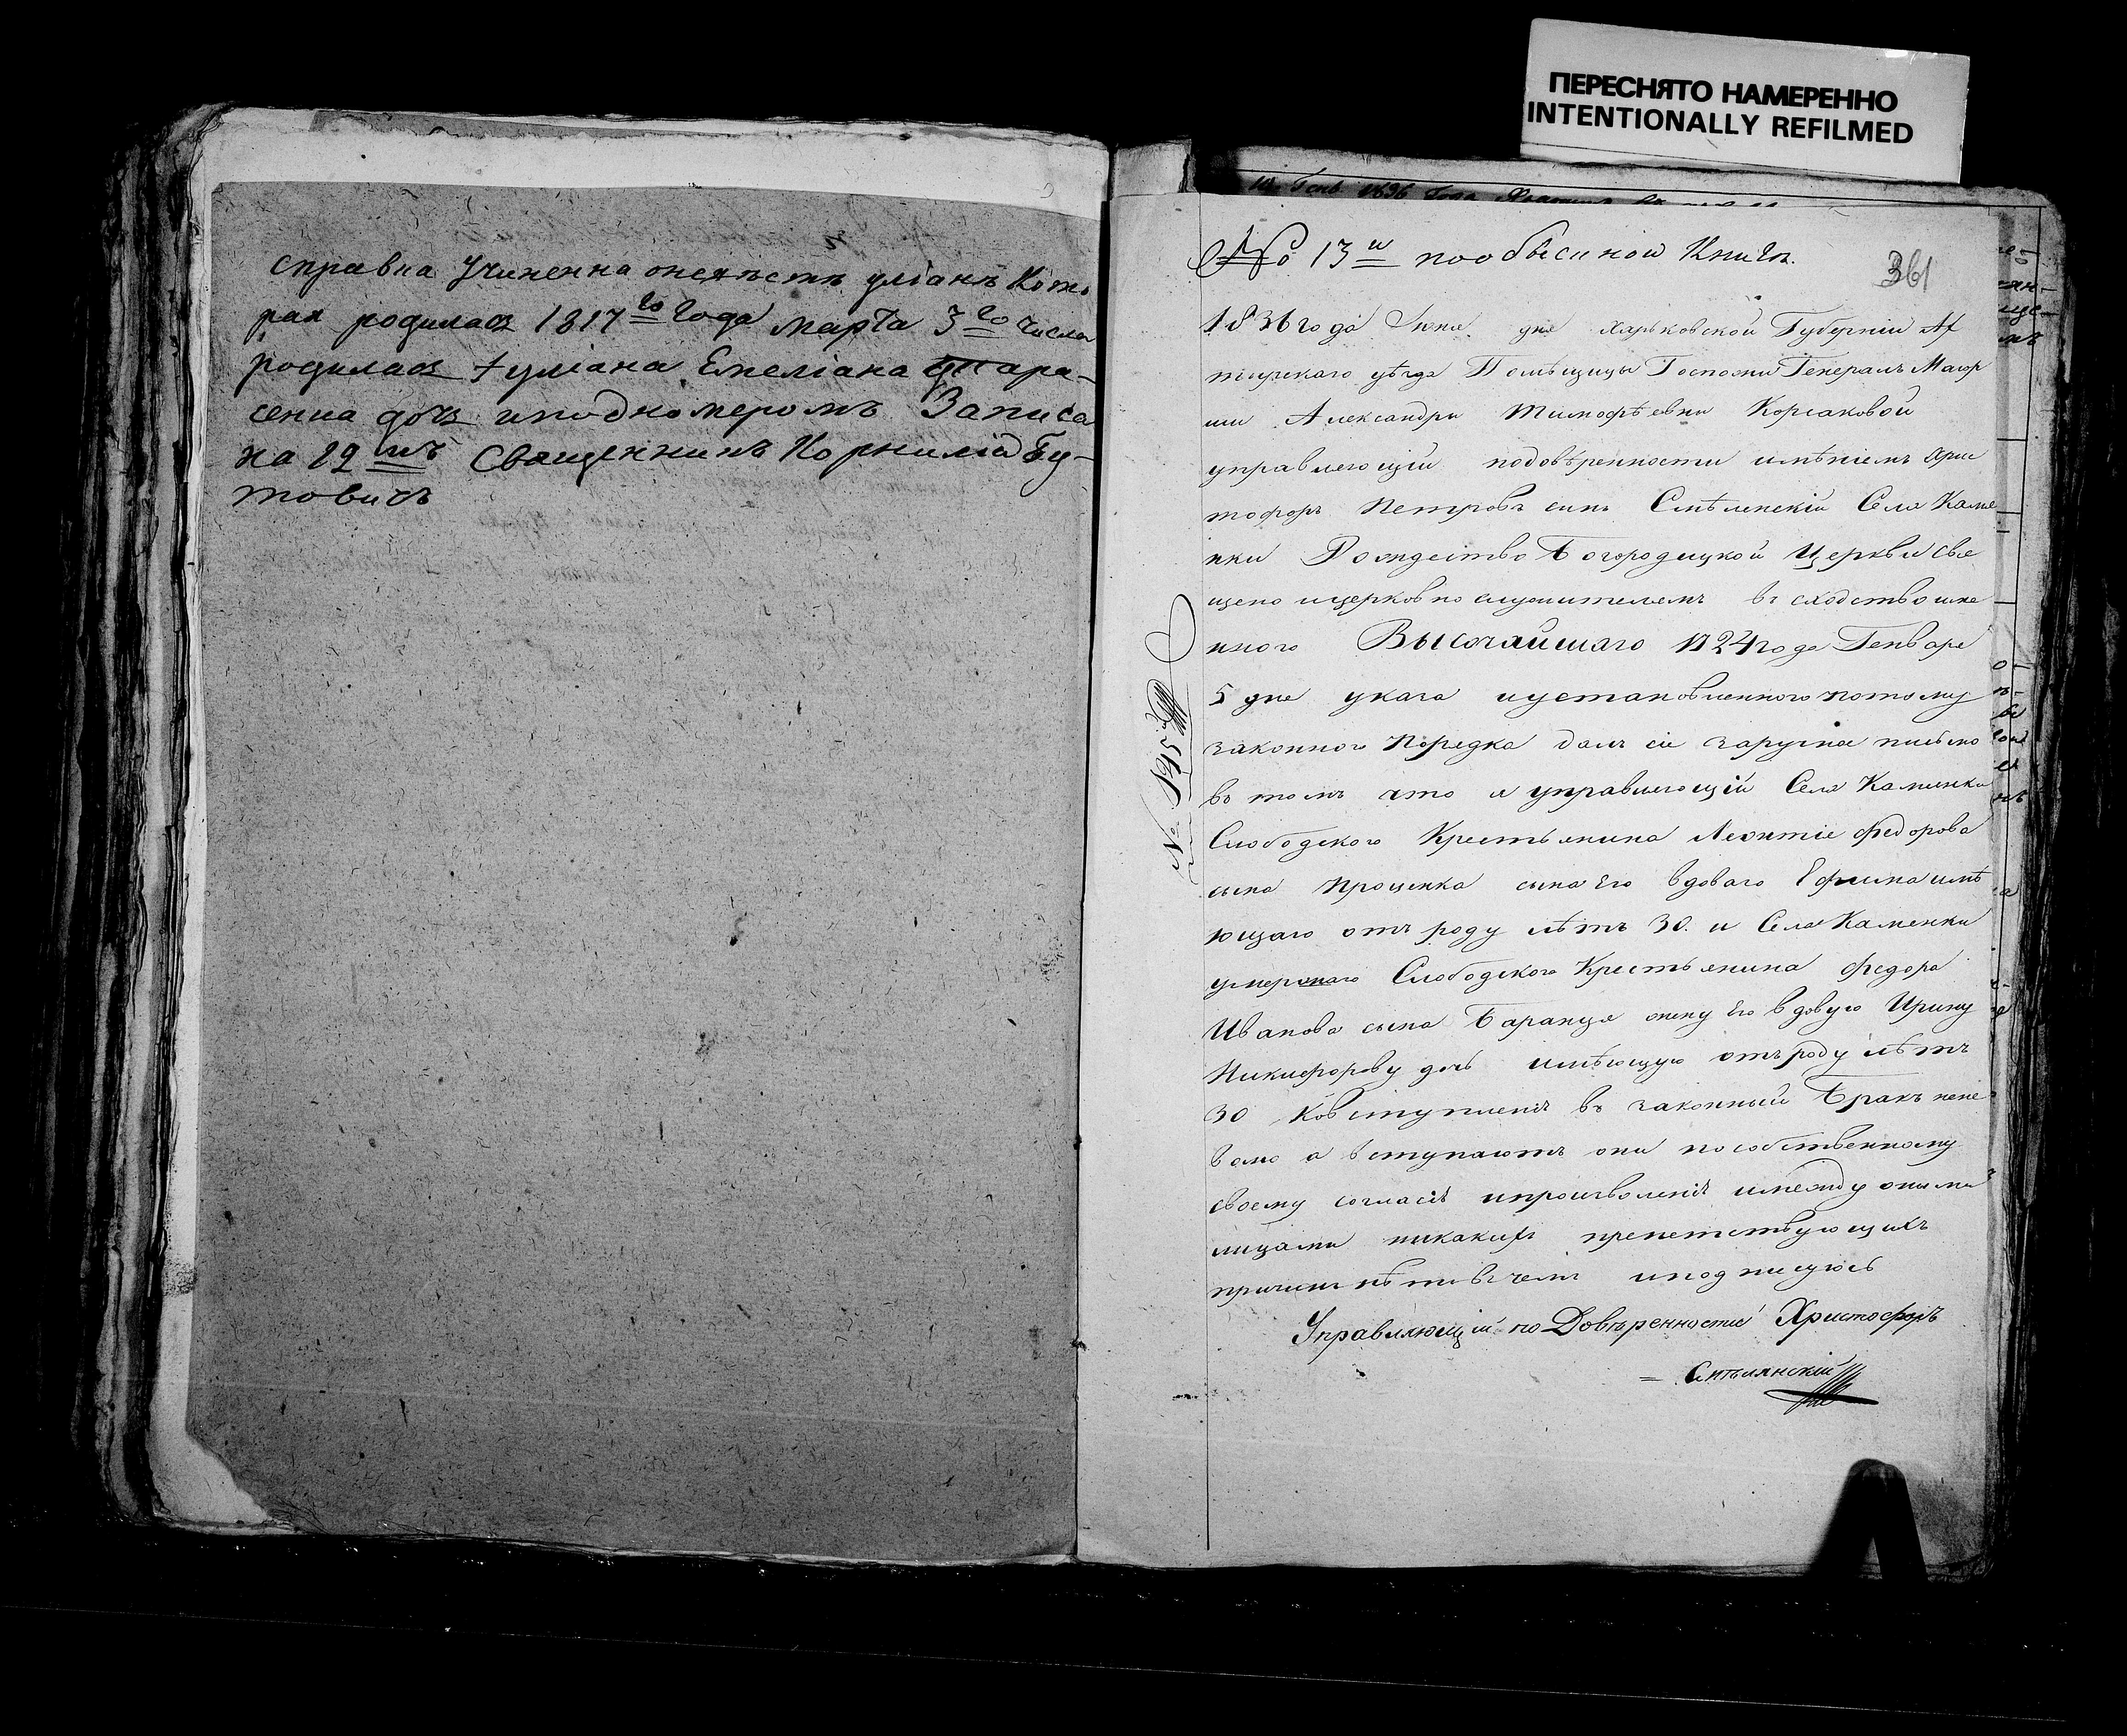 ПЕРЕСНЯТО НАМЕРЕННО
INTENTIONALLY REFILMED
справка Учиненна
рая родилась 1817го года марта 3го числа
родилась Емелiана Тара-
сенка дочь и подномеромъ Записа
на 12мъ Священникъ Корнилiй Бу-
товичь
№ 13й пообыскной Книги.
361
1836 года Июня дня харьковской Губернiи Ах
тырскаго уѣзда Помѣщицы Госпожи Генералъ Маiор
ши Александры тимофѣевны Корсаковой
управляющiй подовѣренности имѣнiемъ Хрис
тофоръ Петровъ сынъ Смѣлянскiй Села Каме
нки Рождество Богородицкой Церкви Свя
щено ицерковнослужителемъ въ сходство име
нного Высочайшаго 1724 года Генваря
5 дня указа иустановленного потому
законного Порядка далъ сiе заручное письмо
въ томъ что я управляющiй Села Каменки
Слободского Крестьянина Леонтiя Федорова
сына Проценка сына Его вдоваго Ефима имѣ
ющаго отъ роду лѣтъ 30. и Села Каменки
умершаго Слободского Крестьянина Федора
Иванова сына Баранця жену Его вдовую Ирину
Никифорову дочь имѣющую отъ роду лѣтъ
30 Ковступленiя въ законный Бракъ нене
волю а вступаютъ они пособственному
своему согласiю ипроизволенiю имежду оными
лицами никакихъ препетствующихъ
причинъ нѣтъ въ чемъ иподписуюсь
Управляющiй по Довѣренности Христофоръ
= Смѣлянскiй